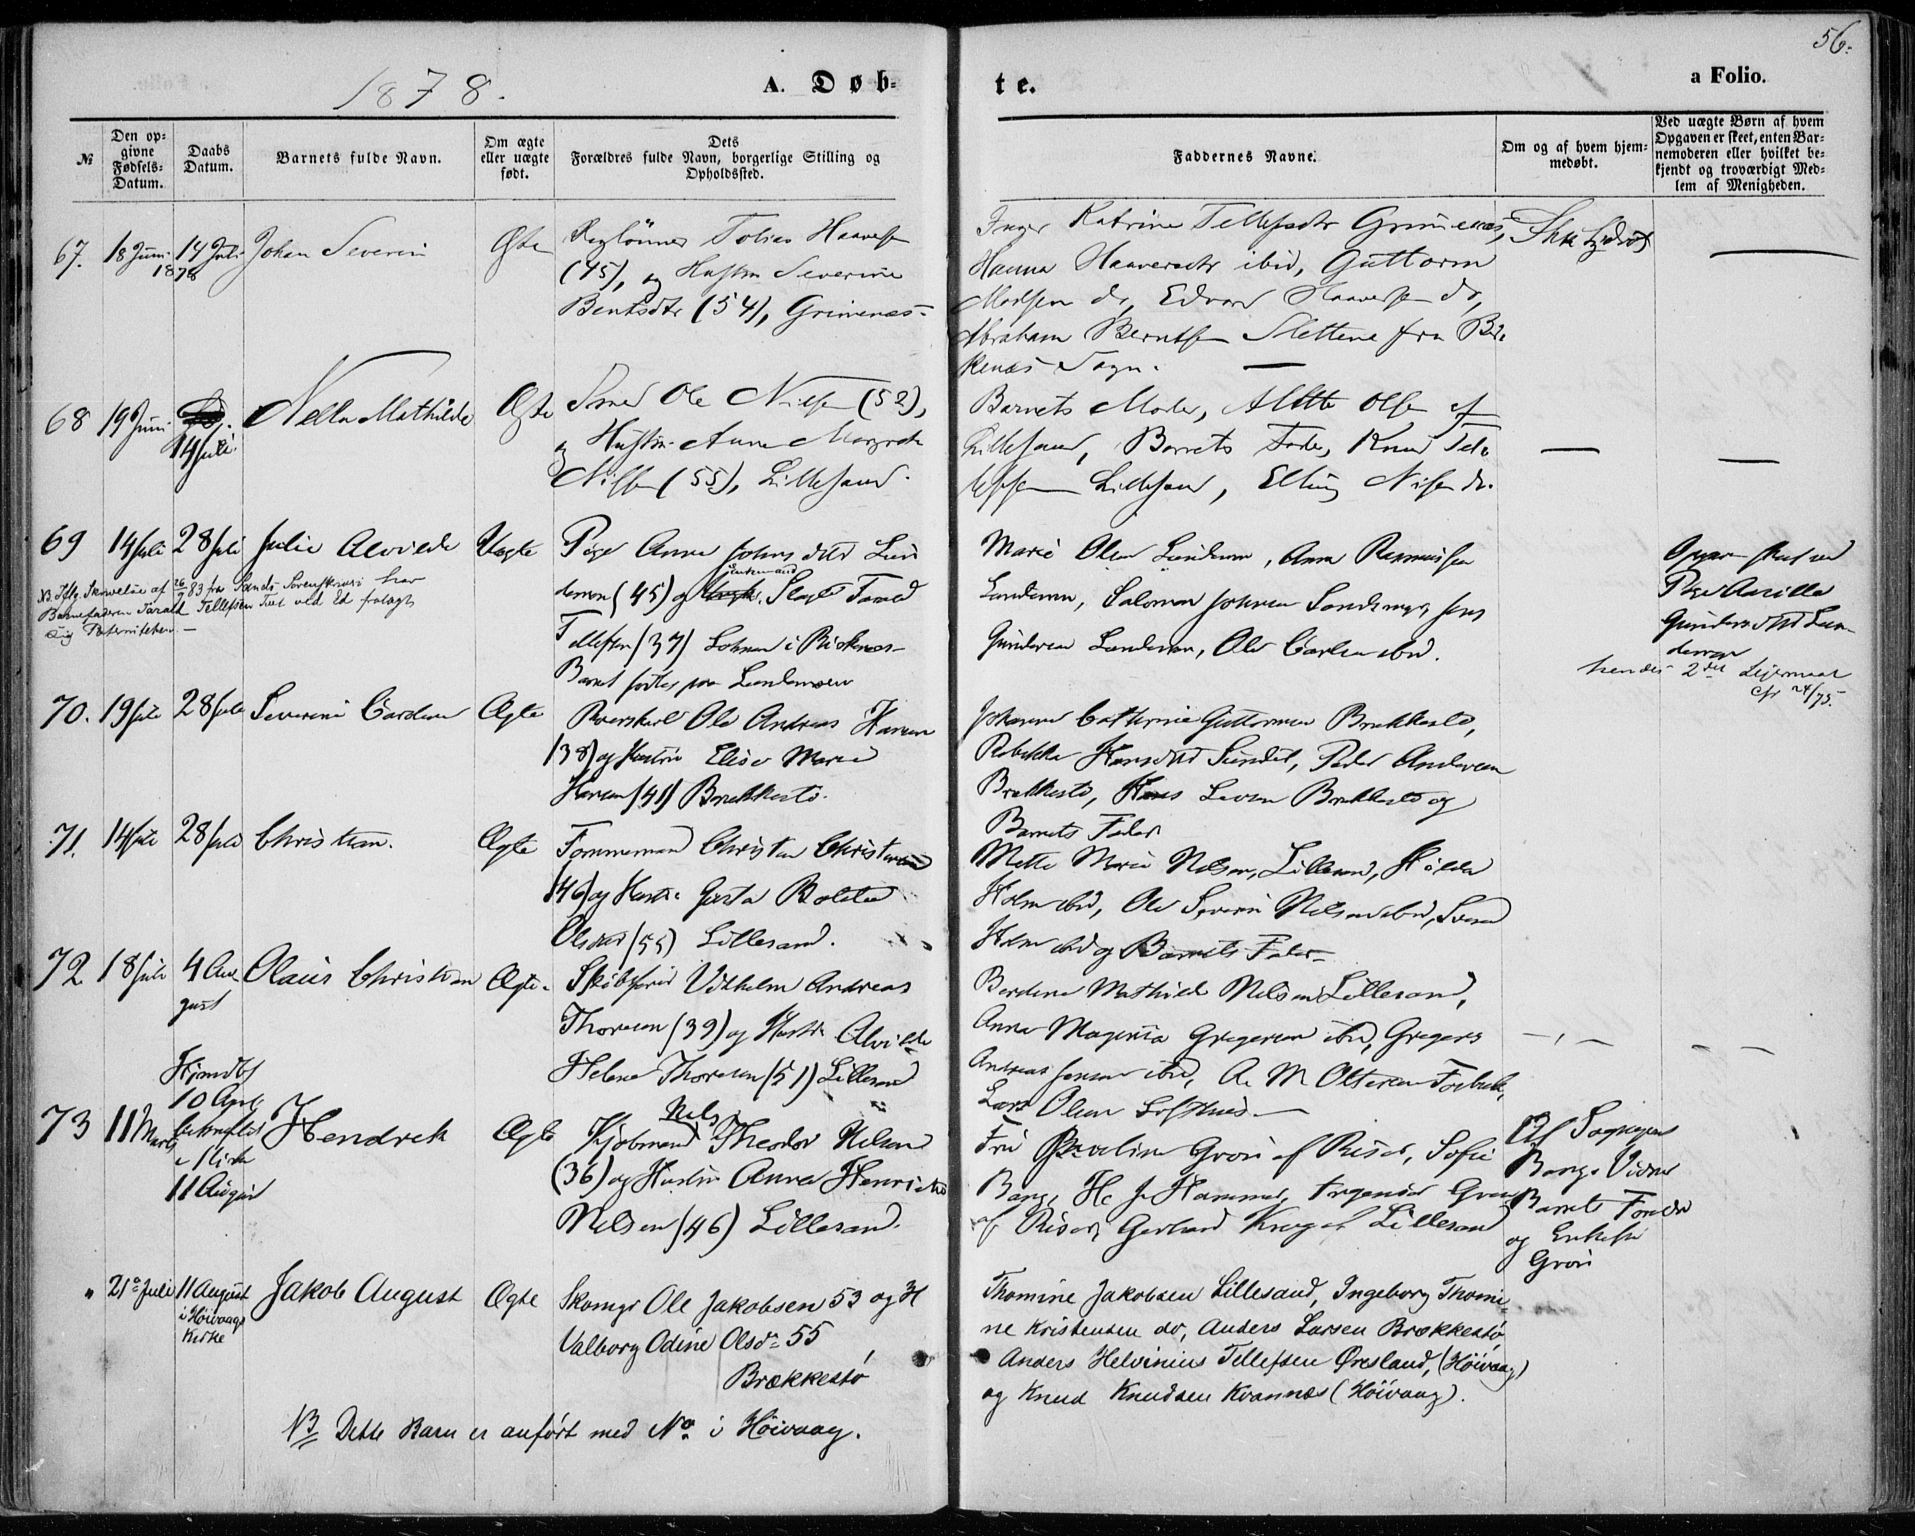 56.
1878.
A. Døb-
te.
a Folio.
№
Den op-
givne
Fødsels-
Datum.
Daabs
Datum.
Barnets fulde Navn.
Om ægte
eller uægte
født.
Dets
Forældres fulde Navn, borgerlige Stilling og
Opholdssted.
Faddernes Navne.
Om og af hvem hjem-
medøbt.
Ved uægte Børn af hvem
Opgaven er skeet, enten Bar-
nemoderen eller hvilket be-
kjendt og troværdigt Med-
lem af Menigheden.
67.
18 Juni
1878
14 Juli
Johan Severin
Ægte
Tobias Haaversen
(45), og Hustru Severine
Bentsdtr (54), Grimenæs
Inger Katrine Tellefsdtr Grimenæs,
Hanna Haaversdtr ibid, Guttorm
Madsen do, Edvard Haaversen do,
Abraham Berntsen Slettene fra Bir-
kenæs Sogn.
68
19 Juni
14 Juli
Nella Mathilde
Ægte
Smed Ole Nilsen (52),
og Hustru Anne Margrete
Nilsen (55), Lillesand.
Barnets Moder, Alette Olsen af
Lillesand, Barnets Fader, Knud Tel-
lefsen Lillesand, Elling Nilsen do.
69
14 Juli
28 Juli
Julie Alvilde
Uægte
Pige Anne Johnsdtr Lun
demon (45) og Ungk. Tarald
Tellefsen (37) i Birkenæs
Barnet født paa Lundemoen
NB. Ifølge Skrivelse af 26/7 83 fra Sands Sorenskriveri har
Barnefaderen Tarald Tellefsen ved Ed fralagt
sig Paterniteten.
Marie Olsen Lundemon, Anna Rasmussen
Lundemon, Salomon Johnsen Sandsmyr, Jens
Gundersen Lundemon, Ole Carlsen ibid.
Gundersdtr Lun-
demon
hendes 2det Leiermaal
cfr 24/75.
70.
19 Juli
28 Juli
Severine Cardine
Ægte
Ole Andreas Hansen
(38) og Hustru Elise Marie
Hansen (41) Brækkestø.
Johanne Cathrine Guttormsen Brækkestø,
Rebekka Hansdtr Sundet, Peder Andersen
Brækkestø, Hans Larsen Brækkestø og
Barnets Fader
71.
14 Juli
28 Juli
Christian.
Ægte
Tømmermand Christen Christensen
(46) og Hustru
Olsdtr (55) Lillesand.
Mette Marie Nilsen, Lillesand, Hilda
Holm ibid, Ole Severin Nilsen ibid, Svend
Holm ibid og Barnets Fader
72
18 Juli
4 Au-
gust
Olaus Christian
Ægte
Skibsfører Vilhelm Andreas
Thoresen (39) og Hustru Alvilde
Helene Thoresen (51) Lillesand
Berdine Mathilde Nilsen Lillesand,
Anna Magnia Gregersen ibid, Gregers
Andreas Jensen ibid,
Lars Olsen
73
11 Marts
Hjemdbt
10 April
bekræftet
i Kirke
11 August
Hendrik
Ægte
Kjøbmand Nils Theodor Nilsen
(36) og Hustru Anna Henrikke
Nilsen (46) Lillesand.
Fru Grøn af Risør, Sofie
Bang, H. J. Hammer, Grøn
af Risør, Gerhard Krog af Lillesand
Af Sognepr
Bang. Vidner
Barnets Forældre
og Enkefru
Grøn
"
21de Juli
11 August
i Höivaags
Kirke
Jakob August
Ægte
Skomgr Ole Jakobsen 53 og H
Valborg Odine Olsdr 55,
Brækkestø
Thomine Jakobsen Lillesand, Ingeborg Thomi-
ne Kristensen do, Anders Larsen Brækkestø
Anders Helvinius Tellefsen Øresland, (Höivaag)
og Knud Knudsen Kvannæs (Höivaag).
NB Dette Barn er anført med No i Höivaag.